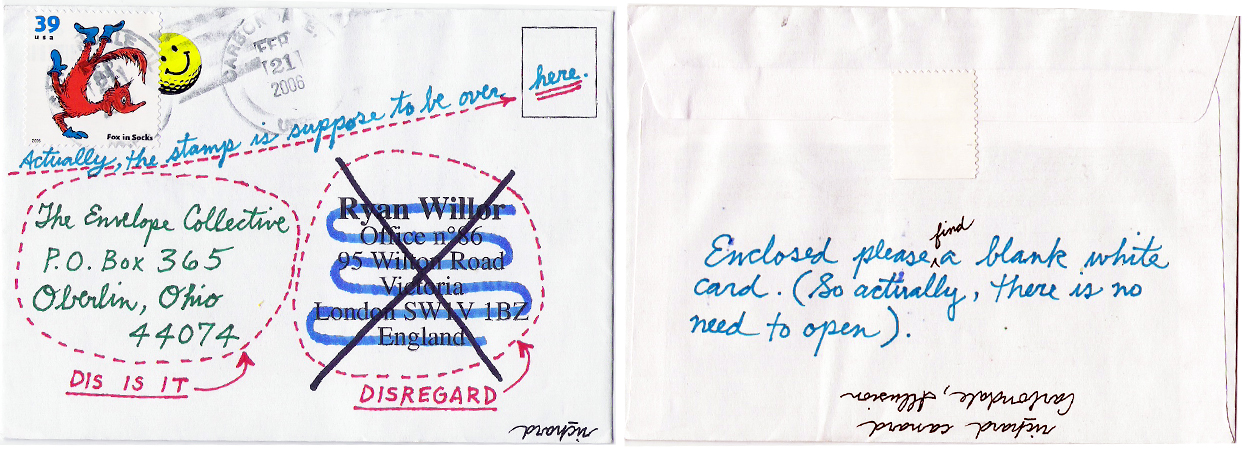 39
usa
CARBONDALE
FEB
21
2006
Fox in Socks
2005
Actually, the stamp is suppose to be over here.
The Envelope Collective
P.O. Box 365
Oberlin, Ohio
44074
DIS IS IT
Ryan Willor
Office n°86
95 Wilton Road
Victoria
London SW1V 1BZ
England
DISREGARD
richard
find
Enclosed please a blank white
card. (So actually, there is no
need to open).
richard canard
Carbondale, Illusion